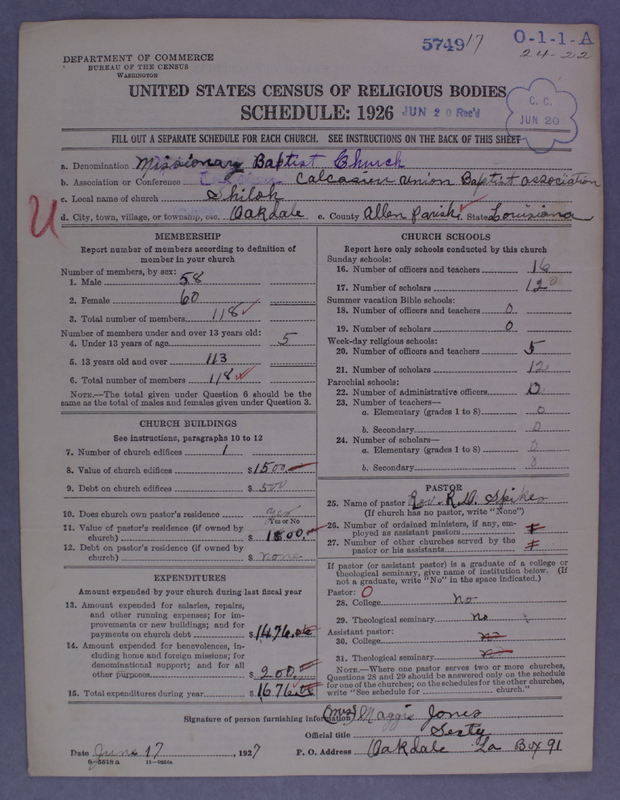 574917
O-1-1-A
24-22
DEPARTMENT OF COMMERCE
BUREAU OF THE CENSUS
WASHINGTON
UNITED STATES CENSUS OF RELIGIOUS BODIES
SCHEDULE: 1926 JUN 20 Rec'd
C. C.
JUN 20
FILL OUT A SEPARATE SCHEDULE FOR EACH CHURCH. SEE INSTRUCTIONS ON THE BACK OF THIS SHEET
a. Denomination Missionary Baptist Church
b. Association or Conference Calcasieu Union Baptist association
c. Local name of church Shiloh
U
d. City, town, village, or township, etc. Oakdale e. County Allen Parish State Louisiana
MEMBERSHIP
Report number of members according to definition of
member in your church
Number of members, by sex:
1. Male 58
2. Female 60
3. Total number of members 118
Number of members under and over 13 years old:
4. Under 13 years of age 5
5. 13 years old and over 113
6. Total number of members 118
NOTE.—The total given under Question 6 should be the
same as the total of males and females given under Question 3.
CHURCH BUILDINGS
See instructions, paragraphs 10 to 12
7. Number of church edifices 1
8. Value of church edifices $1500.
9. Debt on church edifices $500
10. Does church own pastor's residence yes
Yes or No
11. Value of pastor's residence (if owned by
church) $1800.
12. Debt on pastor's residence (if owned by
church) $none
EXPENDITURES
Amount expended by your church during last fiscal year
13. Amount expended for salaries, repairs,
and other running expenses; for im-
provements or new buildings; and for
payments on church debt $1,476.
14. Amount expended for benevolences, in-
cluding home and foreign missions; for
denominational support; and for all
other purposes $200.
15. Total expenditures during year $1,676.
CHURCH SCHOOLS
Report here only schools conducted by this church
Sunday schools:
16. Number of officers and teachers 16
17. Number of scholars 120
Summer vacation Bible schools:
18. Number of officers and teachers 0
19. Number of scholars 0
Week-day religious schools:
20. Number of officers and teachers 5
21. Number of scholars 12
Parochial schools:
22. Number of administrative officers 0
23. Number of teachers—
a. Elementary (grades 1 to 8) 0
b. Secondary 0
24. Number of scholars—
a. Elementary (grades 1 to 8) 0
b. Secondary 0
PASTOR
25. Name of pastor Rev. R. D. Spikes
(If church has no pastor, write "None")
26. Number of ordained ministers, if any, em-
ployed as assistant pastors
27. Number of other churches served by the
pastor or his assistants
If pastor (or assistant pastor) is a graduate of a college or
theological seminary, give name of institution below. (If
not a graduate, write "No" in the space indicated.)
Pastor: 0
28. College No
29. Theological seminary No
Assistant pastor:
30. College no
31. Theological seminary no
NOTE.—Where one pastor serves two or more churches,
Questions 28 and 29 should be answered only on the schedule
for one of the churches; on the schedules for the other churches,
write "See schedule for church."
Signature of person furnishing information (Mrs) Maggie Jones
Official title Secty
Date June 17, 1927 P. O. Address Oakdale La Box 91
8-5518a